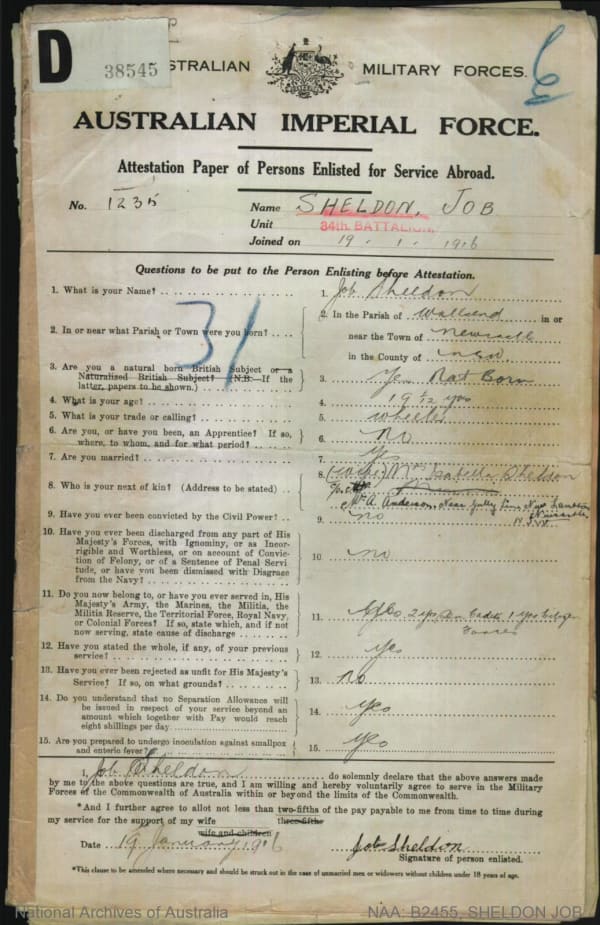 D
38545
STRALIAN MILITARY FORCES.
AUSTRALIAN IMPERIAL FORCE.
Attestation Paper of Persons Enlisted for Service Abroad.
No. 1235 Name SHELDON, JOB
Unit 34th. BATTALION.
Joined on 19 . 1 . 1916
Questions to be put to the Person Enlisting before Attestation.
31
1. What is your Name? 1. Job Sheldon
2. In or near what Parish or Town were you born? 2. In the Parish of Wallsend in or
near the Town of Newcastle
in the County of N.S.W.
3. Are you a natural born British Subject or a
Naturalised British Subject? (N.B.—If the
latter, papers to be shown.) 3. Yes Nat Born
4. What is your age? 4. 19 yrs
5. What is your trade or calling? 5. Wheeler
6. Are you, or have you been, an Apprentice? If so,
where, to whom, and for what period? 6. No
7. Are you married? 7. Yes
8. Who is your next of kin? (Address to be stated) 8. (Wife) Mrs Isabella Sheldon
A. Anderson, Gully Line, New Lambton
N.S.W.
9. Have you ever been convicted by the Civil Power? 9. no
10. Have you ever been discharged from any part of His
Majesty's Forces, with Ignominy, or as Incor-
rigible and Worthless, or on account of Convic-
tion of Felony, or of a Sentence of Penal Servi
tude, or have you been dismissed with Disgrace
from the Navy? 10 no
11. Do you now belong to, or have you ever served in, His
Majesty's Army, the Marines, the Militia, the
Militia Reserve, the Territorial Force, Royal Navy,
or Colonial Forces? If so, state which, and if not
now serving, state cause of discharge 11. Yes 2 yrs Cadets 1 yr Citizen
Forces
12. Have you stated the whole, if any, of your previous
service? 12. Yes
13. Have you ever been rejected as unfit for His Majesty's
Service? If so, on what grounds? 13. No
14. Do you understand that no Separation Allowance will
be issued in respect of your service beyond an
amount which together with Pay would reach
eight shillings per day 14. Yes
15. Are you prepared to undergo inoculation against smallpox
and enteric fever? 15. Yes
I, Job Sheldon do solemnly declare that the above answers made
by me to the above questions are true, and I am willing and hereby voluntarily agree to serve in the Military
Forces of the Commonwealth of Australia within or beyond the limits of the Commonwealth.
*And I further agree to allot not less than two-fifths of the pay payable to me from time to time during
three-fifths
my service for the support of my wife
wife and children
Date 19 January 1916 Job Sheldon
Signature of person enlisted.
*This clause to be amended where necessary and should be struck out in the case of unmarried men or widowers without children under 18 years of age.
National Archives of Australia NAA: B2455, SHELDON JOB